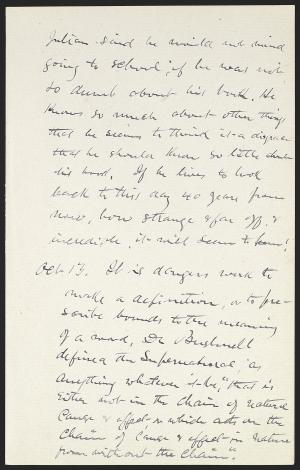 Julian said he would not mind
going to school, if he was not
so dumb about his book. He
knows so much about other things
that he seems to think it a disgrace
that he should know so little about
his book. If he lives to look
back to this day 40 years from
now, how strange & far off, &
incredible, it will seem to him!
Oct. 17. It is dangers work to
make a definition, or to pre-
scribe bounds to the meaning
of a word. Dr Bushnell
defined the Supernatural, as
anything whatever it be, "that is
either not in the chain of natural
Cause & effect, or which acts on the
Chain of Cause & effect in nature
from without the Chain".